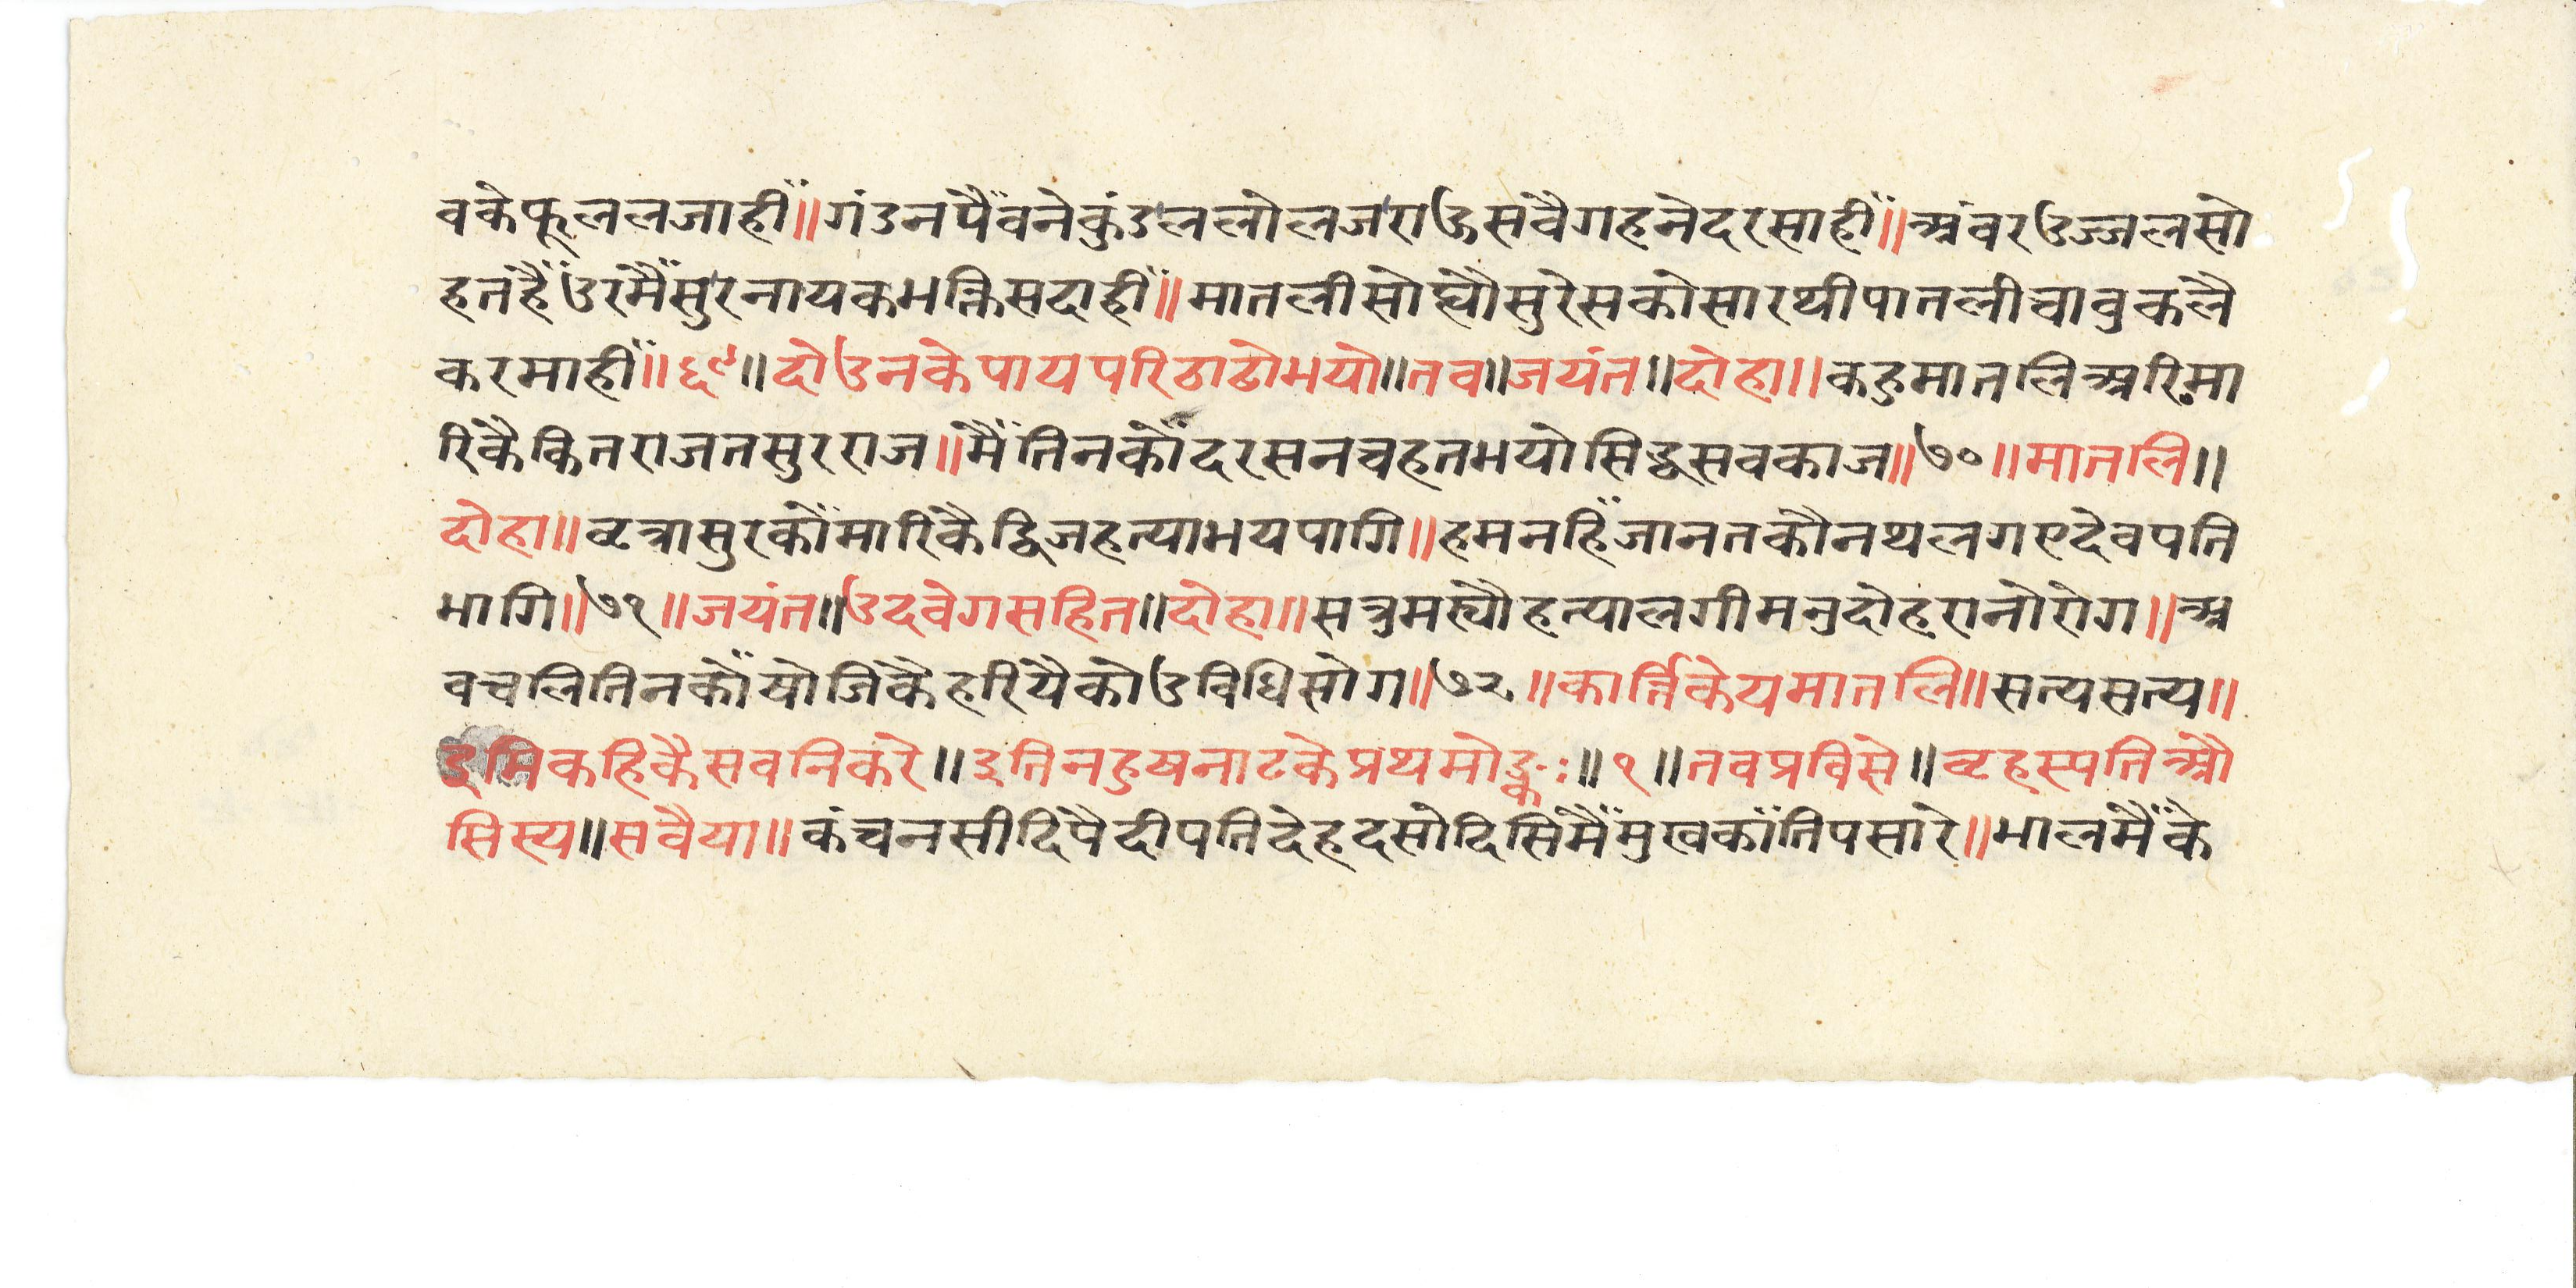 वकेफूललजाहीँ॥गंडनपैँवनेकुंडललोलजराऊसवैगहनेदरसाहीँ॥अंवरउज्जलसो
हतहैँउरमैँसुरनायकभक्तिसदाहीँ॥मातलीसोघ्यौसुरेसकोसारथीपातलीचावुकलै
करमाहीँ॥६९॥दोउनकेपायपरिठाढोभयो॥तव॥जयंत॥दोहा॥कहुमातलिअरिमा
रिकैकितराजतसुरराज॥मैँतिनकौँदरसनचहतभयोसिद्धसवकाज॥७०॥मातलि॥
दोहा॥वृत्रासुरकोँमारिकैद्विजहत्याभयपागि॥हमनहिँजानतकौनथलगएदेवपति
भागि॥७१॥जयंत॥उदवेगसहित॥दोहा॥सत्रुमस्यौहत्यालगीमनुदोहरानोरोग॥अ
वचलितिनकौँयोजिकैहरियैकोउविधिसोग॥७२॥कार्त्तिकेयमातलि॥सत्यसत्य॥
इमिकहिकैसवनिकरे॥इतिनहुषनाटकेप्रथमोङ्कः॥१॥तवप्रविसे॥वृहस्पतिऔ
सिस्य॥सवैया॥कंचनसीदिपैदीपतिदेहदसोदिसिमैँमुखकांतिपसारे॥भालमैँके